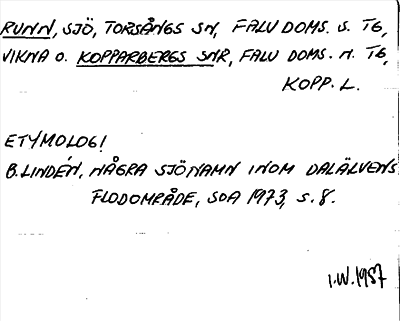 RUNN, SJÖ, TORSÅNGS SN, FALU DOMS. S. TG,
VIKNA O. KOPPARBERGS SNR, FALU DOMS. N. TG,
KOPP. L.
ETYMOLOGI
B. LINDÉN, NÅGRA SJÖNAMN INOM DALÄLVENS
FLODOMRÅDE, SOÅ 1973, S. 8.
I.W. 1987